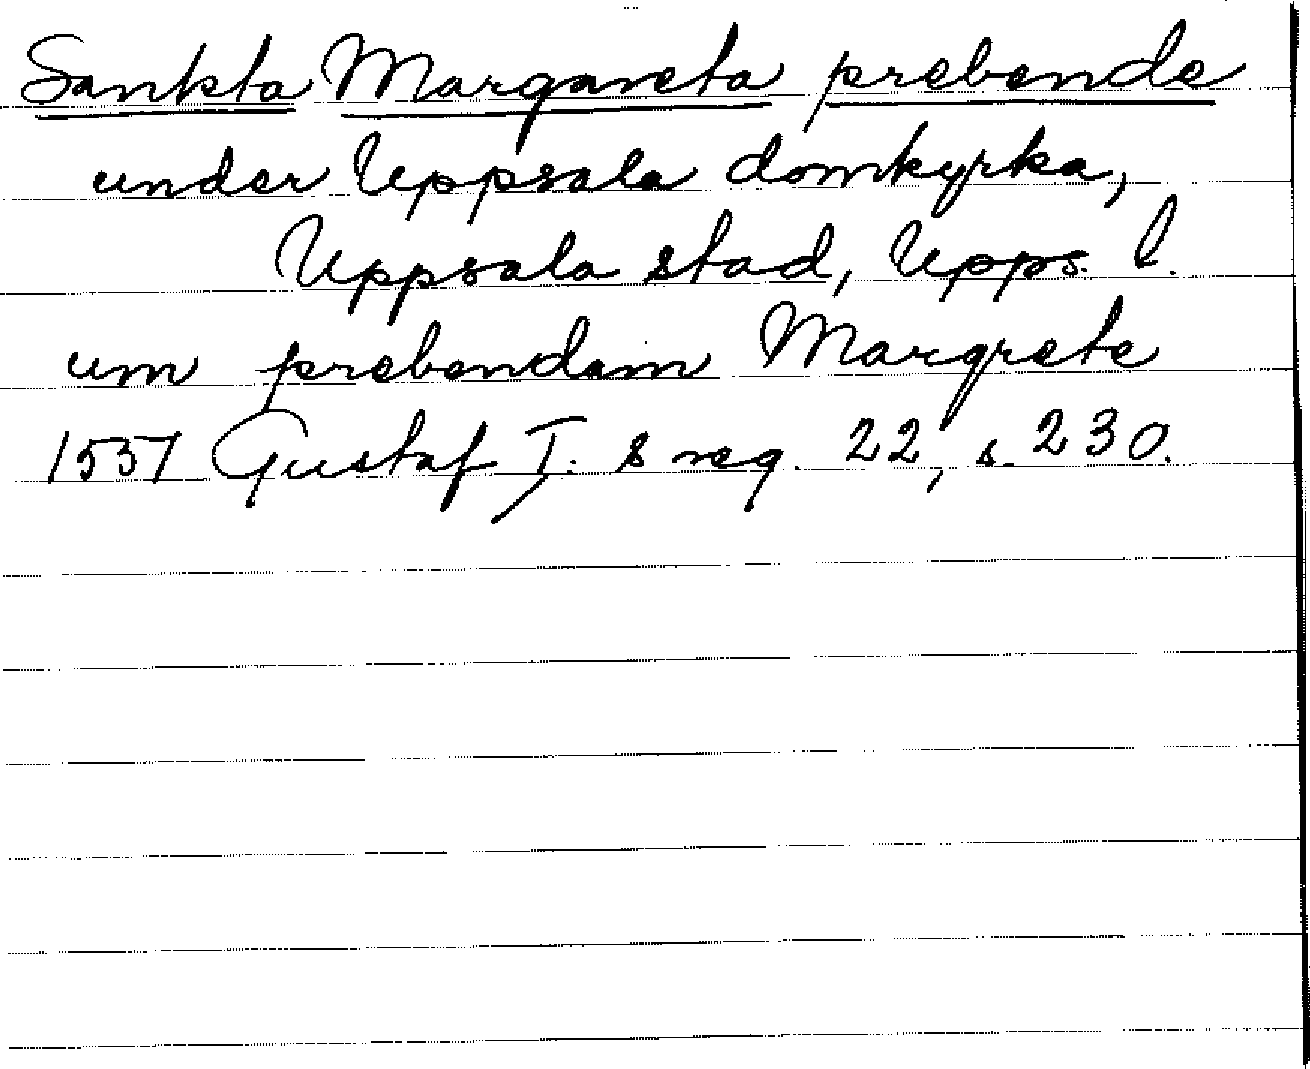 Sankta Margareta prebende
under Uppsala domkyrka,
Uppsala stad, Upps. l.
um prebendam Margrete
1551 Gustaf I. s reg. 22, s. 230.